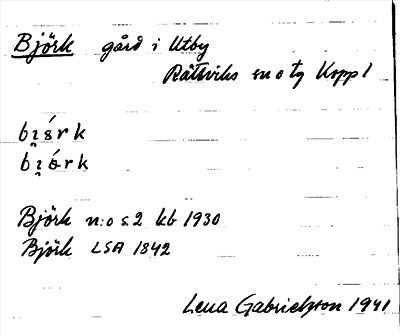 Björk gård i Utby
Rättviks sn o tg Kopp l
bi̯ǿrk
bi̯ǿrk
Björk n:o s. 2 kb 1930
Björk LSA 1842
Lena Gabrielsson 1941